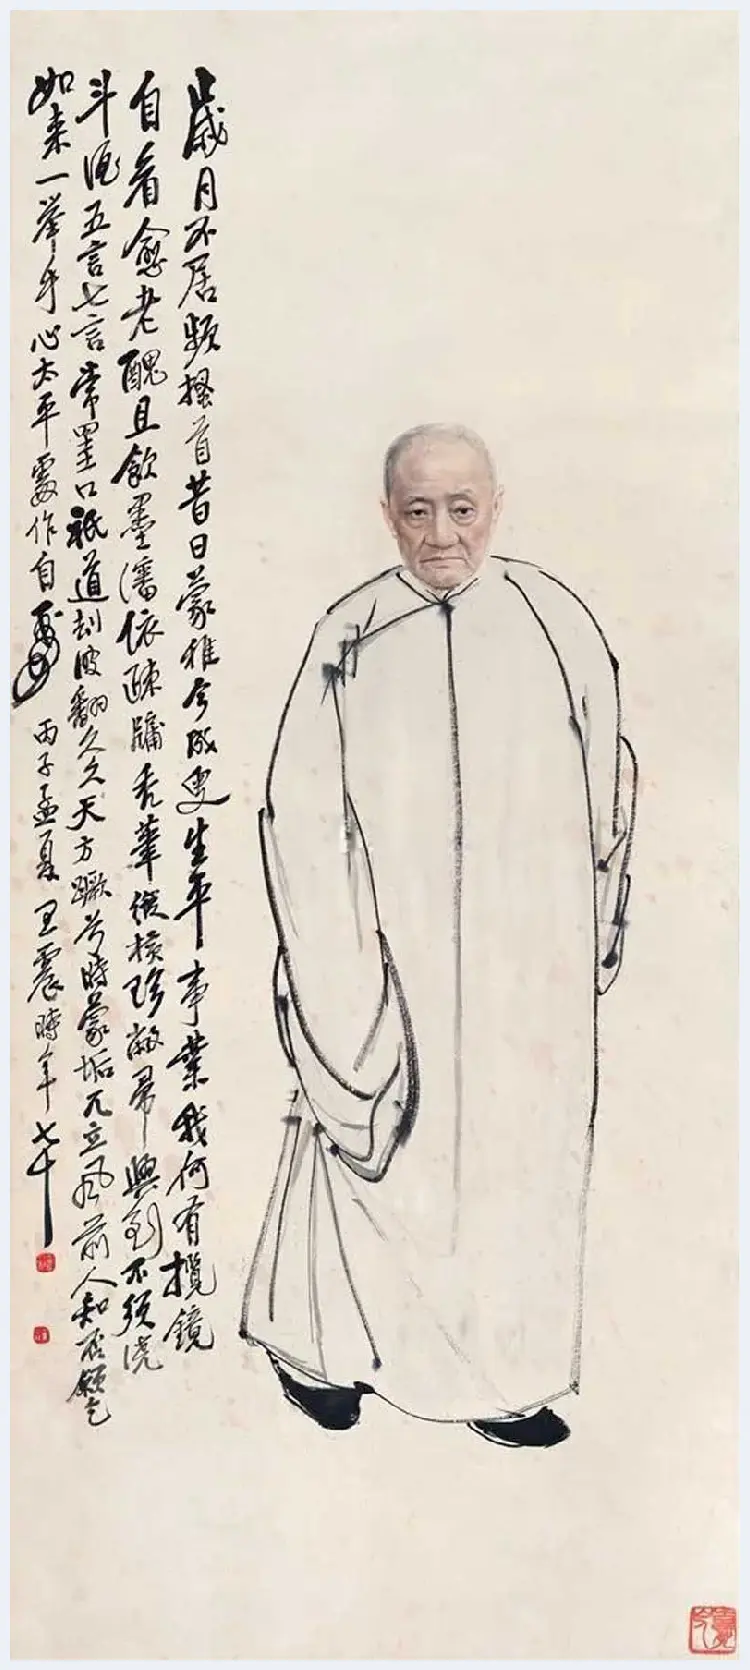 歲月不居頻搔首昔日蒙稚今成叟生平事業我何有攬鏡
自看愈老醜且飲墨瀋依陳牖禿筆縱橫珍敝帚興到不須澆
斗酒五言七言常墨口祇道刦波翻久久天方蹶兮時蒙垢兀立風前人知否願乞
如來一舉手心太平處作自壽
丙子孟夏王震時年七十